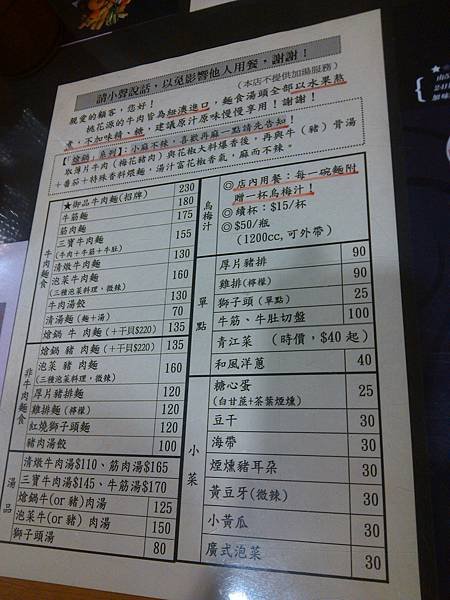 請小聲說話，以免影響他人用餐，謝謝！
親愛的顧客，您好！
（本店不提供加湯服務）
桃花源的牛肉皆為紐澳進口，麵食湯頭全部以水果熬
煮，不加味精、糖，建議原汁原味慢慢享用！謝謝！
【熗鍋】系列】：小麻不辣，喜歡再麻一點請先告知！
取薄片牛肉（梅花豬肉）與花椒大料爆香後，再與牛（豬）骨湯
＋番茄＋特殊香料煨麵，湯汁富花椒香氣，麻而不辣。
牛肉麵食
★御品牛肉麵(招牌) 230
牛筋麵 180
筋肉麵 175
三寶牛肉麵
(牛肉+牛筋+牛肚) 155
清燉牛肉麵 130
泡菜牛肉麵
(三種泡菜料理，微辣) 160
牛肉湯餃 130
清湯麵(麵+湯) 70
熗鍋 牛 肉麵(＋干貝$220) 135
非牛肉麵食
熗鍋 豬 肉麵(＋干貝$220) 135
泡菜 豬 肉麵
(三種泡菜料理，微辣) 160
厚片豬排麵 120
雞排麵(檸檬) 120
紅燒獅子頭麵 120
豬肉湯餃 100
湯品
清燉牛肉湯$110、筋肉湯$165
三寶牛肉湯$145、牛筋湯$170
熗鍋牛(or 豬)肉湯 125
泡菜牛(or 豬) 肉湯 150
獅子頭湯 80
烏梅汁
◎店內用餐：每一碗麵附
贈一杯烏梅汁！
◎續杯：$15/杯
◎$50/瓶
(1200cc,可外帶)
單點
厚片豬排 90
雞排(檸檬) 90
獅子頭(單點) 25
牛筋、牛肚切盤 100
青江菜 （時價，$40 起）
和風洋蔥 40
小菜
糖心蛋
(白甘蔗+茶葉煙燻) 25
豆干 30
海帶 30
煙燻豬耳朵 30
黃豆芽(微辣) 30
小黃瓜 30
廣式泡菜 30